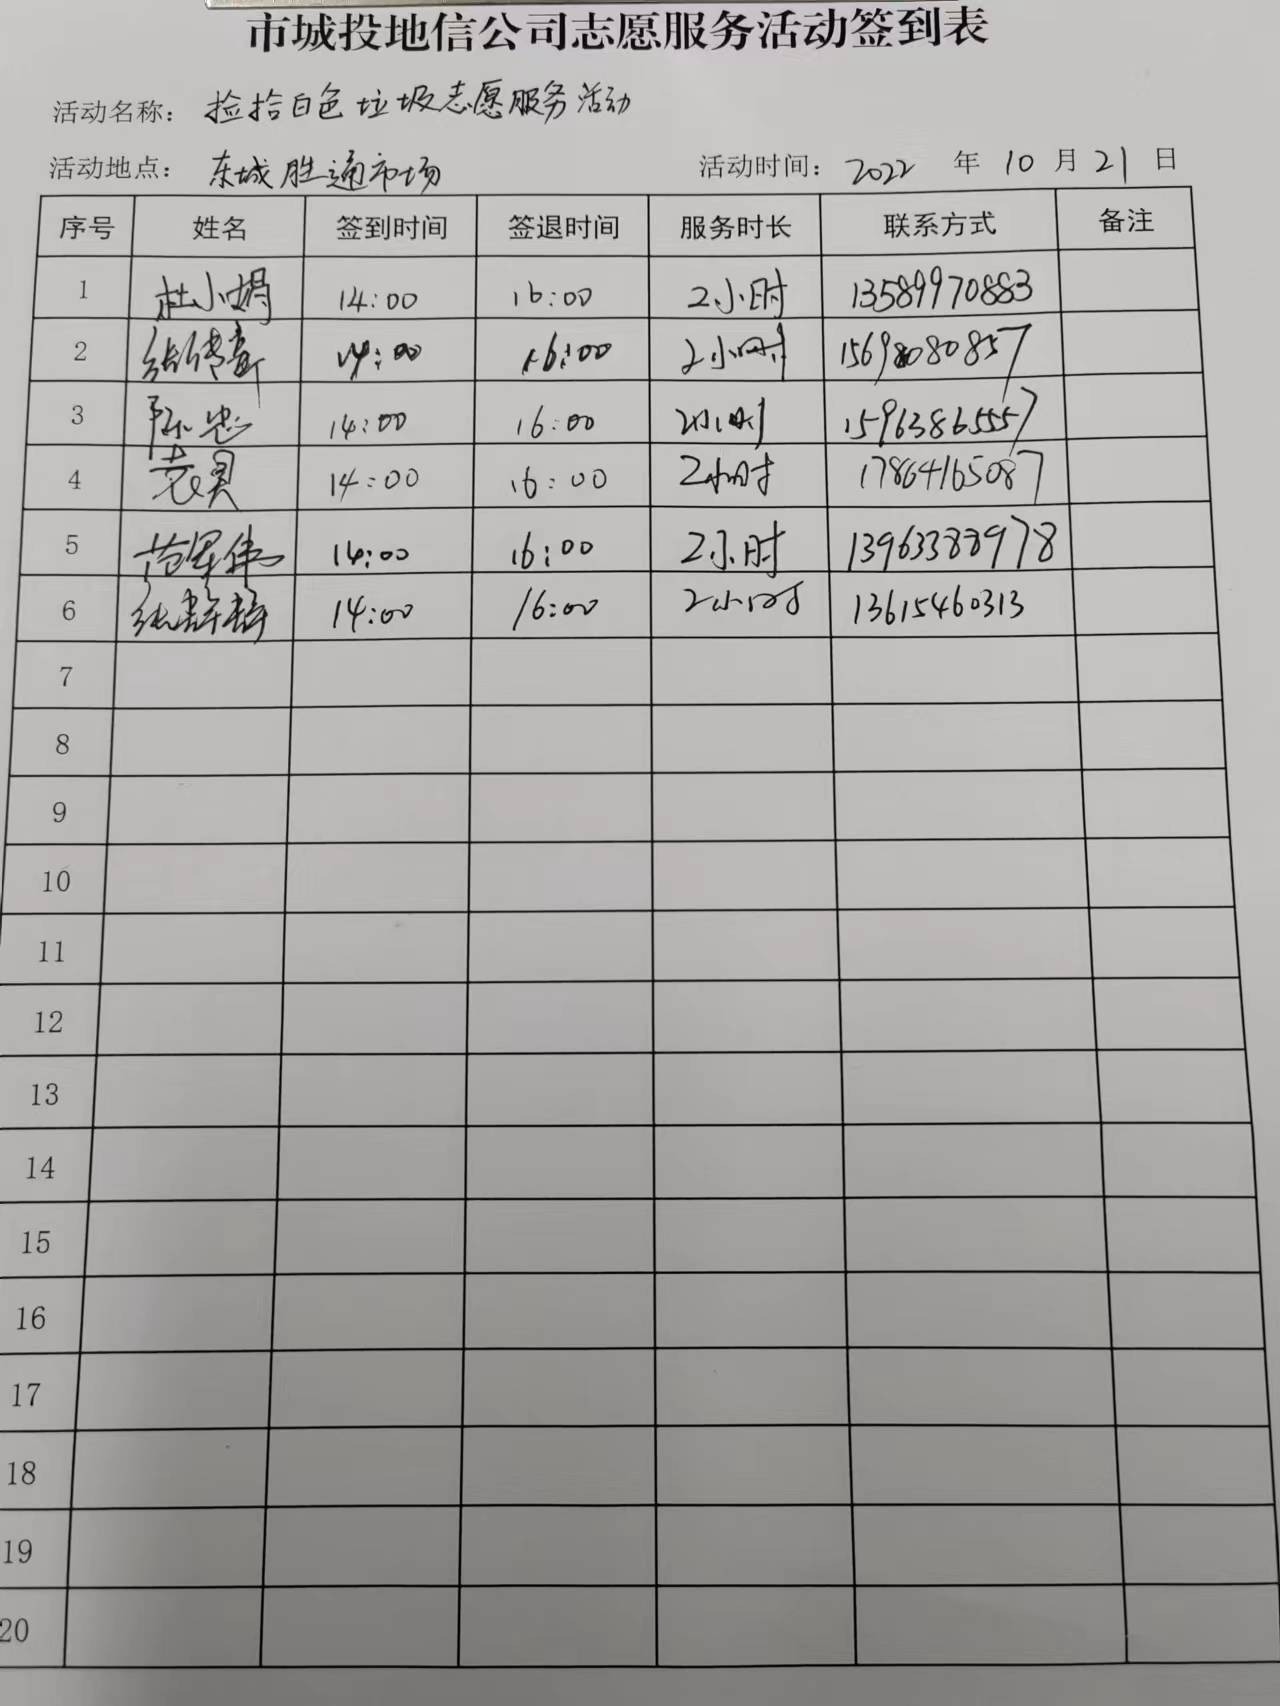 市城投地信公司志愿服务活动签到表
活动名称： 捡拾白色垃圾志愿服务活动
活动地点： 东城胜通市场 活动时间： 2022 年 10 月 21 日
序号 姓名 签到时间 签退时间 服务时长 联系方式 备注
1 杜小娟 14:00 16:00 2小时 13589970883
2 14:00 16:00 2小时 15698080857
3 陈忠 14:00 16:00 2小时 15963865557
4 袁昊 14:00 16:00 2小时 17864165087
5 范军伟 14:00 16:00 2小时 13963388978
6 14:00 16:00 2小时 13615460313
7
8
9
10
11
12
13
14
15
16
17
18
19
20